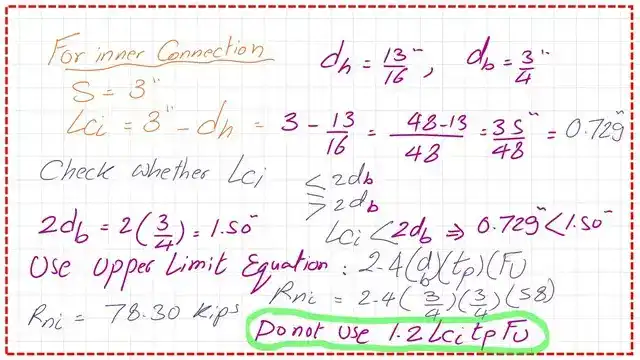 For inner Connection
dh = 13/16", db = 3/4"
S = 3"
Lci = 3" - dh = 3 - 13/16 = 48-13/48 = 35/48" = 0.729"
Check whether Lci ≤ 2db
≥ 2db
2db = 2(3/4) = 1.50"
Lci < 2db ⇒ 0.729" < 1.50"
Use Upper Limit Equation : 2.4(db)(tp)(FU
Rni = 2.4(3/4)(3/4)(58)
Rni = 78.30 Kips
Do not Use 1.2 Lci tp FU